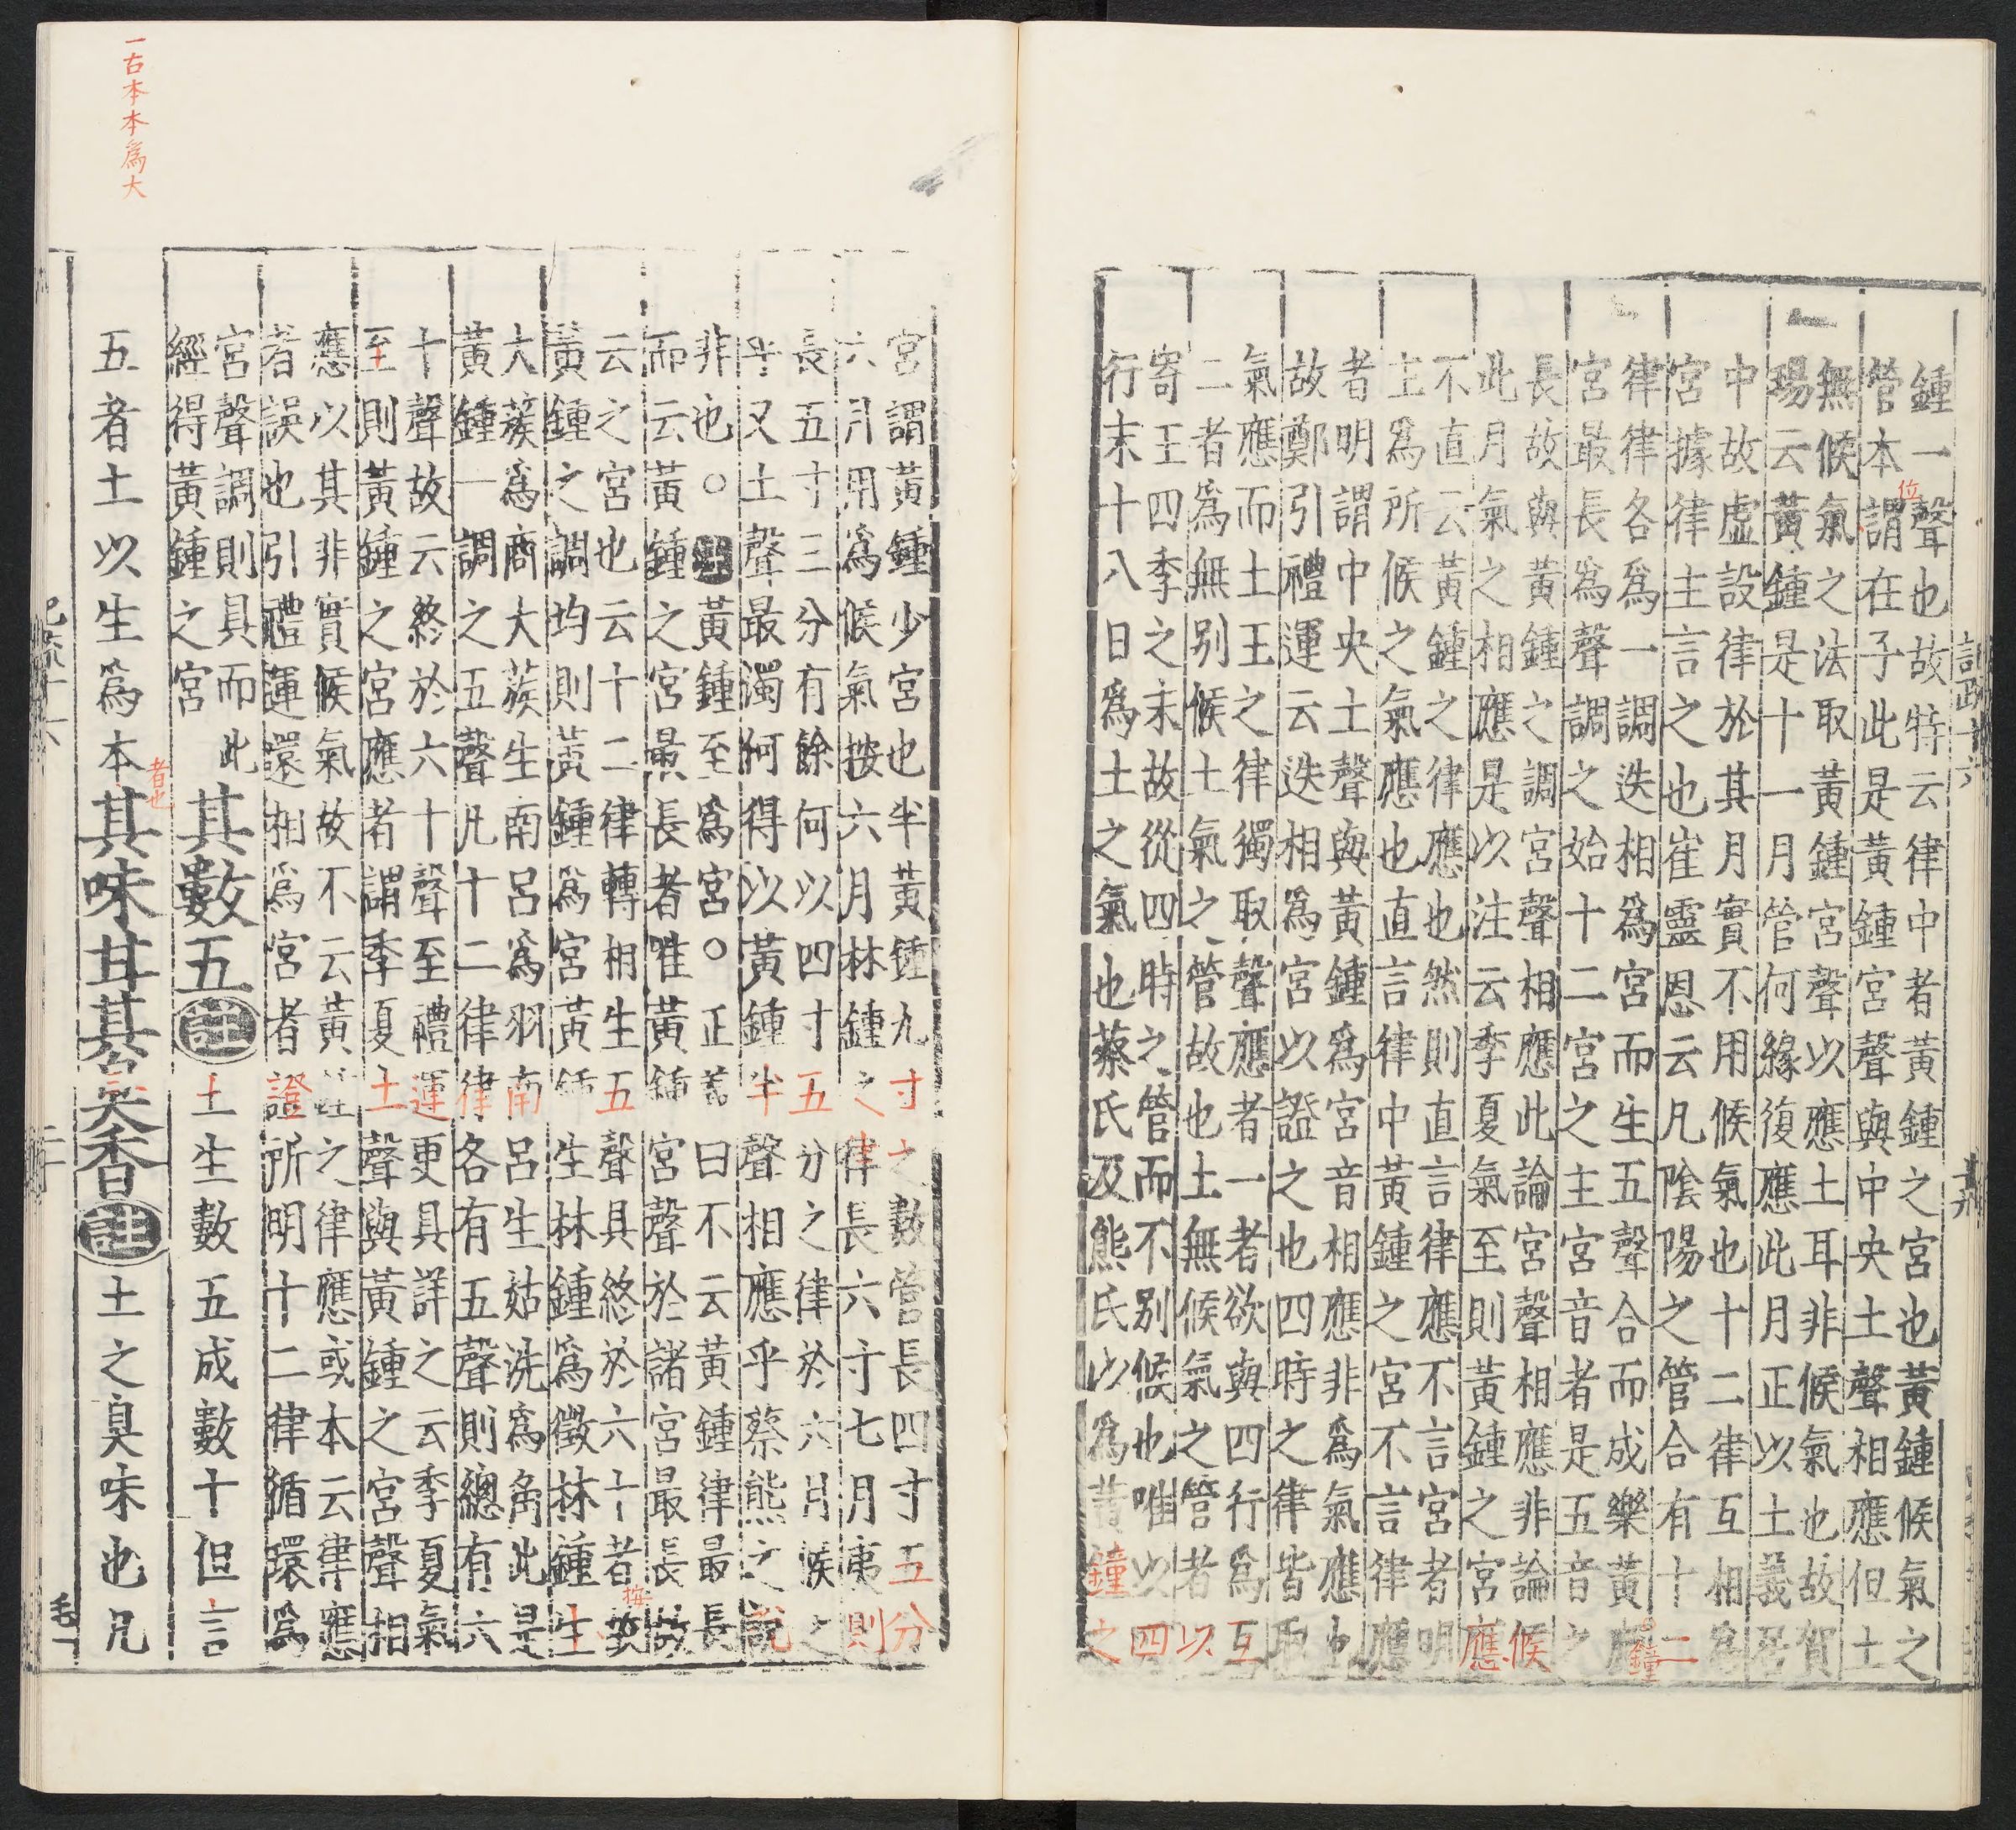 鍾一聲也故特云律中者黃鍾之宮也黃鍾候氣之
管本位謂在子此是黃鍾宮聲與中央土聲相應但土
無候氣之法取黃鍾宮聲以應土耳非候氣也故賀
瑒云黃鍾是十一月管何緣復應此月正以土義居
中故虛設律於其月實不用候氣也十二律互相為
宮據律主言之也崔靈恩云凡陰陽之管合有十二
律律各為一調迭相為宮而生五聲合而成樂黃鍾
宮最長為聲調之始十二宮之主宮音者是五音之
長故與黃鍾之調宮聲相應此論宮聲相應非論候
此月氣之相應是以注云季夏氣至則黃鍾之宮應
不直云黃鍾之律應也然則直言律應不言宮者明
主為所候之氣應也直言律中黃鍾之宮不言律應
者明謂中央土聲與黃鍾為宮音相應非為氣應也
故鄭引禮運云迭相為宮以證之也四時之律皆取
氣應而土王之律獨取聲應者一者欲與四行為互
二者為無別候土氣之管故也土無候氣之管者以
寄王四季之末故從四時之管而不別候也唯以四
行末十八日為土之氣也蔡氏及熊氏以為黃鐘之
記疏十六
宮謂黃鍾少宮也半黃鍾九寸之數管長四寸五分
六月用為候氣按六月林鍾之律長六寸七月夷則
長五寸三分有餘何以四寸五分之律於六月候之
乎又土聲最濁何得以黃鍾半聲相應乎蔡熊之說
非也○黃鍾至為宮○正義曰不云黃鍾律最長
而云黃鍾之宮最長者唯黃鍾宮聲於諸宮最長故
云之宮也云十二律轉相生五聲具終於六十者按
黃鍾之調均則黃鍾為宮黃鍾生林鍾為徵林鍾生
大蔟為商大蔟生南呂為羽南呂生姑洗為角此是
黃鍾一調之五聲凡十二律律各有五聲則總有六
十聲故云終於六十聲至禮運更具詳之云季夏氣
至則黃鍾之宮應者謂季夏土聲與黃鍾之宮聲相
應以其非實候氣故不云黃鍾之律應或本云律應
者誤也引禮運還相為宮者證所明十二律循環為
宮聲調則具而此
經得黃鍾之宮
其數五註土生數五成數十但言
五者土以生為本者也其味甘其臭香註土之臭味也凡
一古本本為大